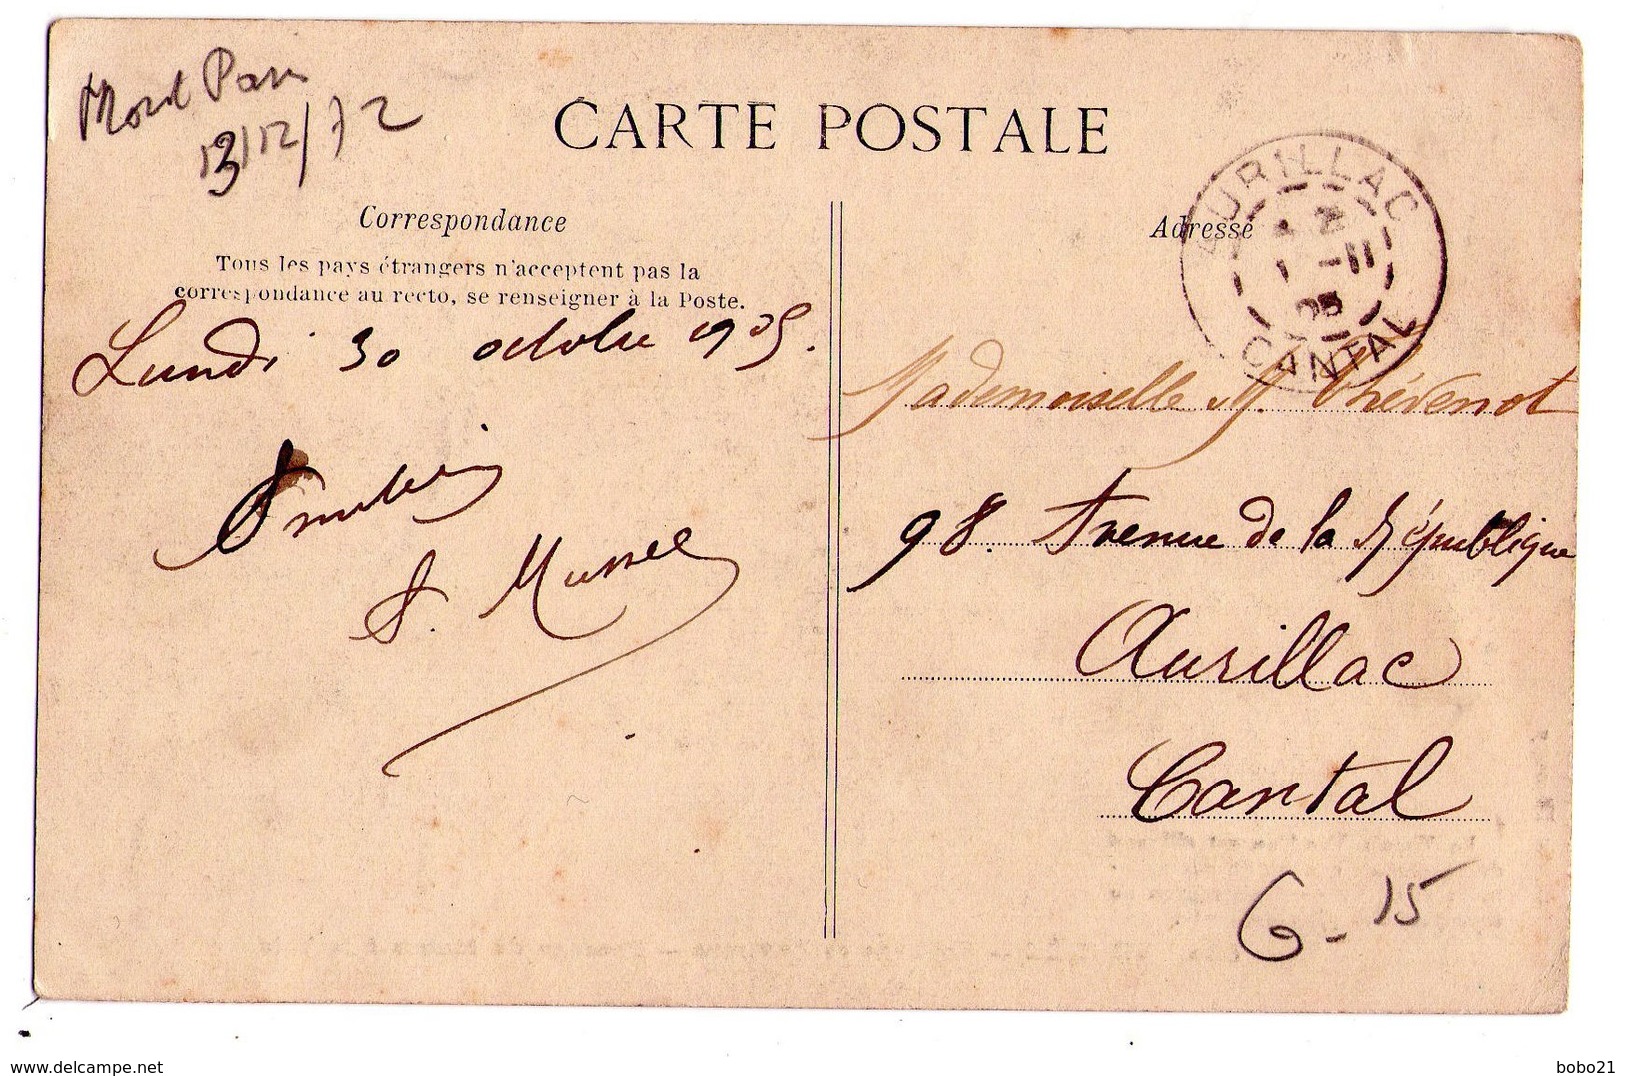 CARTE POSTALE
13/12/72
Correspondance
Tous les pays étrangers n'acceptent pas la
correspondance au recto, se renseigner à la Poste.
Lundi 30 octobre 1905.
AURILLAC
-11
05
CANTAL
Adresse
Mademoiselle M. Thévenot
98. Avenue de la République
Aurillac
Cantal
G-15
bobo21